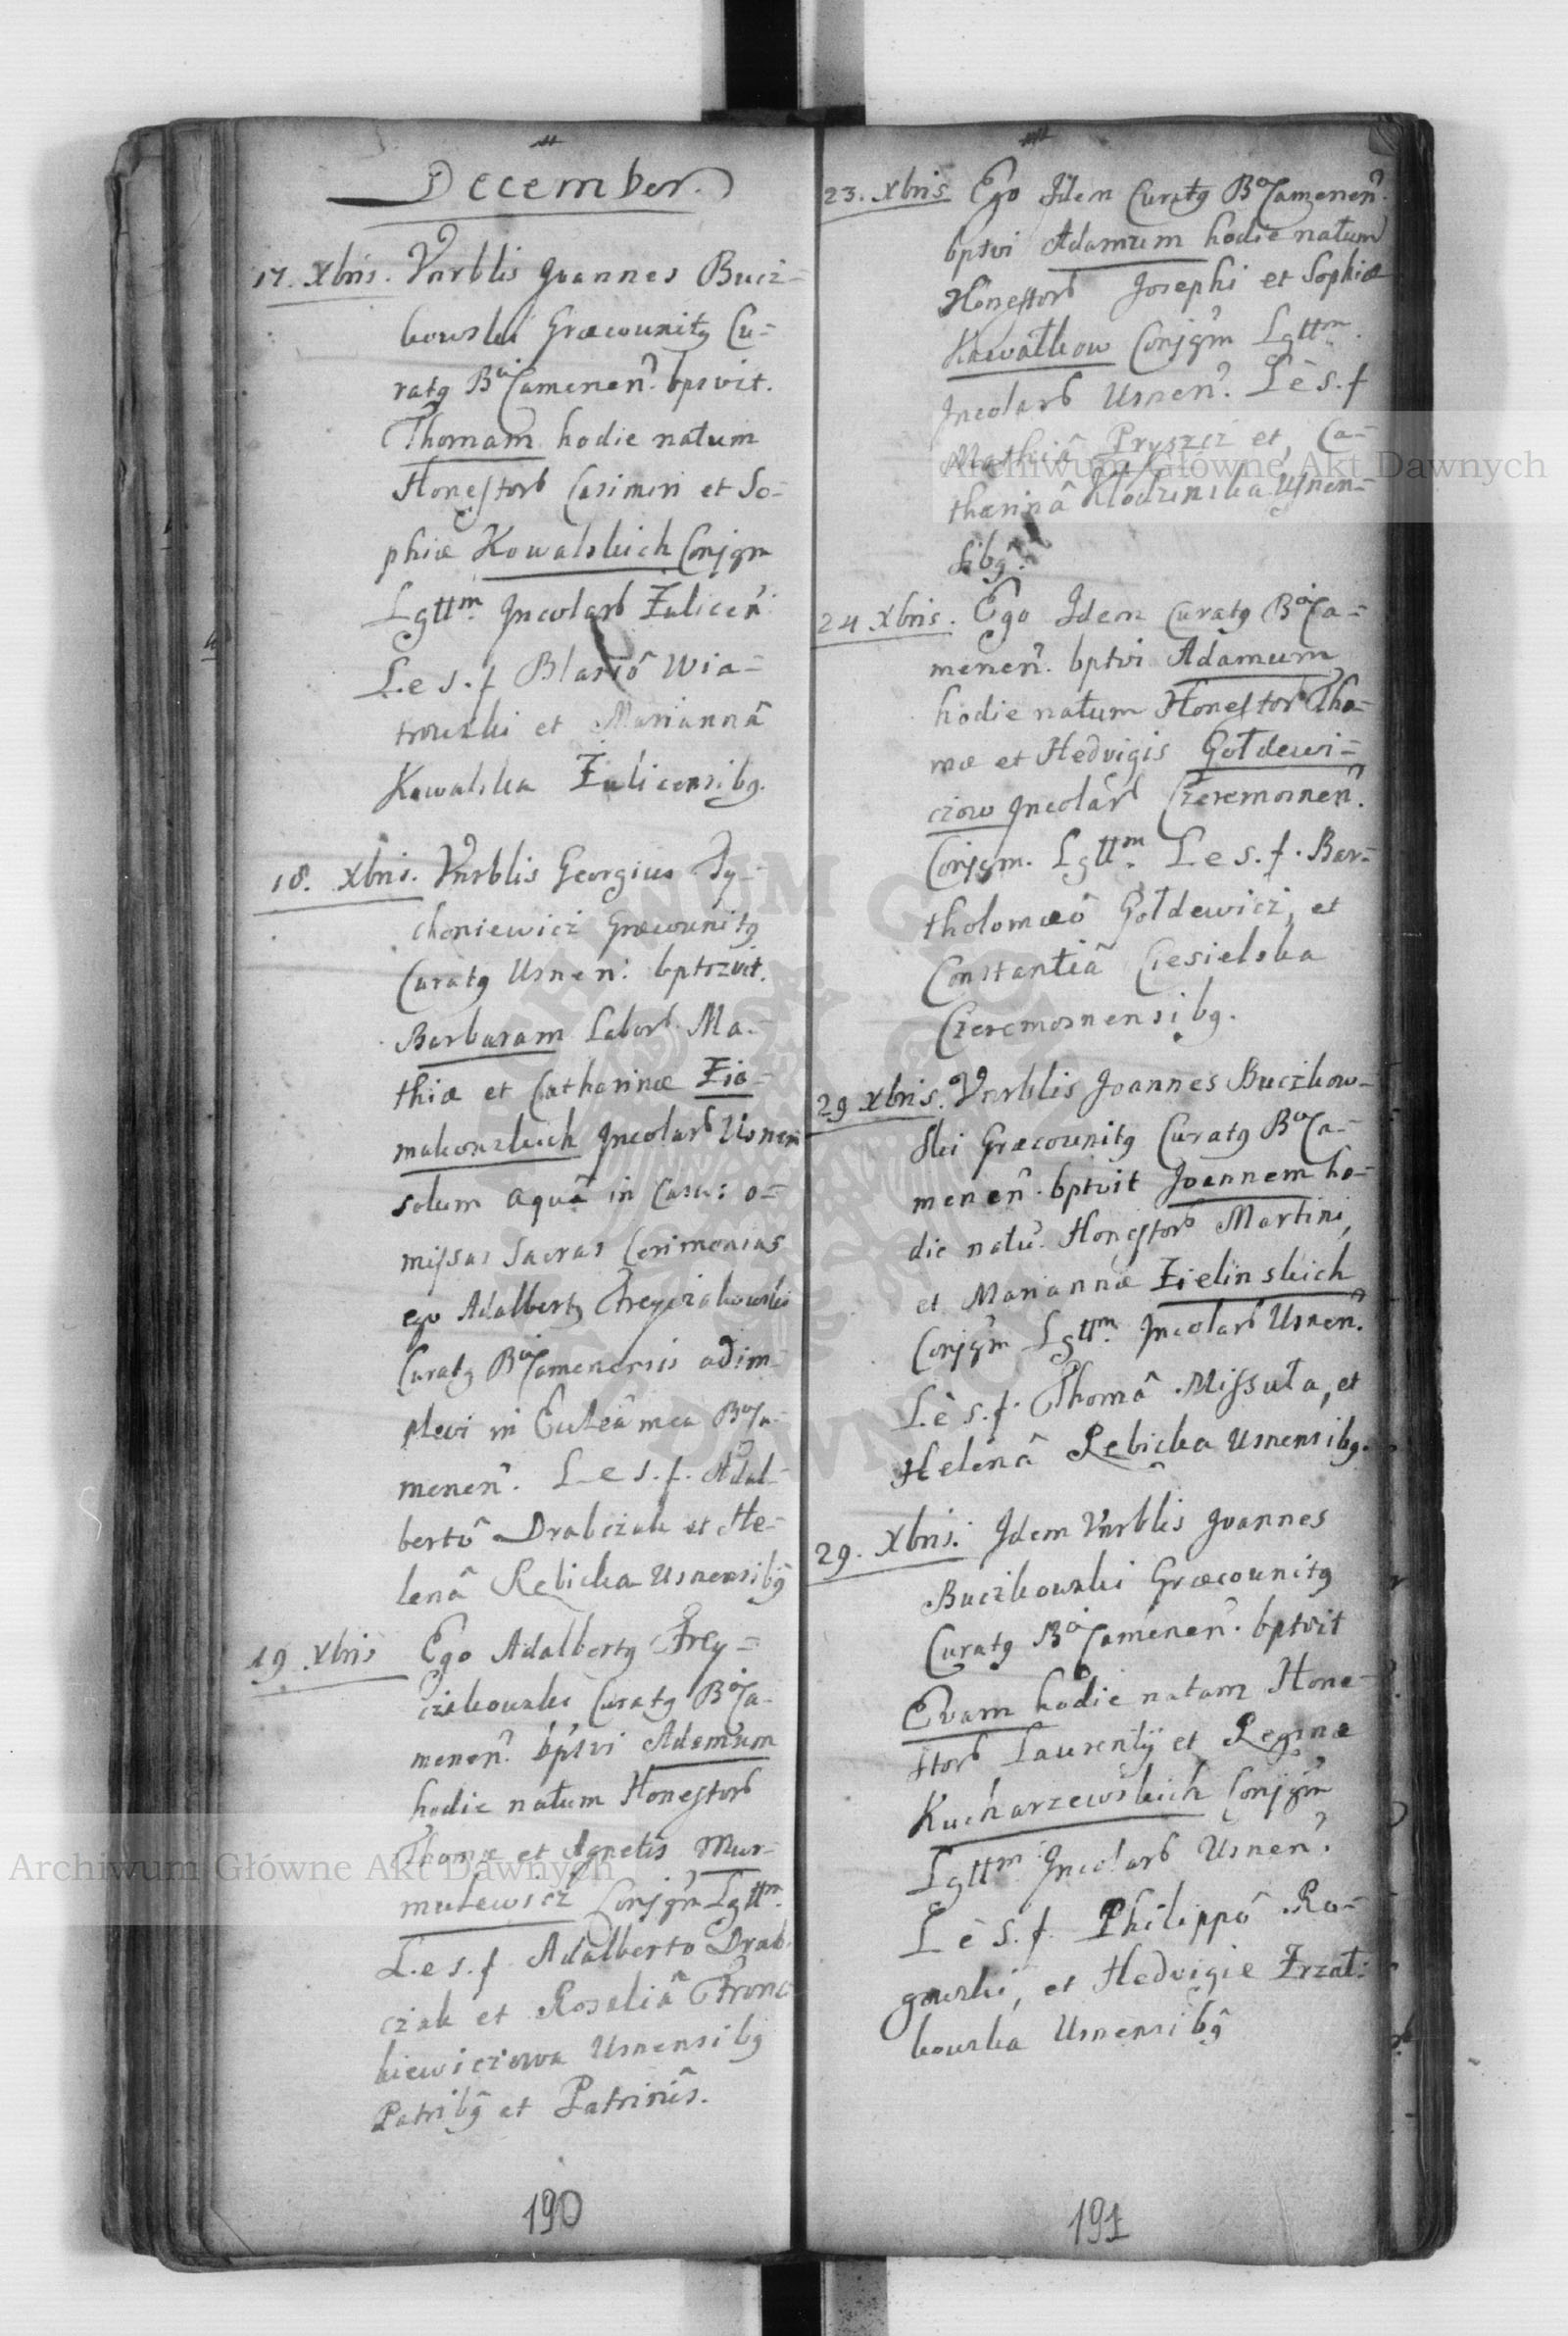 December.
17. Xbris. Vnrblis Joannes Bucz=
kowski Græcounitq Cu=
ratq BaCamenen. bpsvit.
Thomam hodie natum
Honestorb Casimiri et So=
phiæ Kowalskich Conjgm
Lgttm. Incolarb Żulicen.
L.e s.f Blasiô Wia=
trowski et Mariannâ
Kowalska Żulicensibq.
18. Xbris. Vnrblis Georgius Ty=
choniewicz Græcounitq
Curatq Usnen. bptzvit.
Barbaram Laborb. Ma=
thiæ et Catharinæ Zio=
makowskich Incolarb Usnen
solum aquâ in Casu: o=
missas Sacras Cerimonias
ego Adalbertq Freyczakowski
Curatq BaCamenensis adim=
plevi in Eccleâ mea BaCa=
menen. L e s.f. Adal=
bertô Drabczak et He=
lenâ Rebicka Usnensibq
19. Xbris Ego Adalbertq Frey=
czakowski Curatq BaCa=
menen. bptvi Adamum
hodie natum Honestorb
Thomæ et Agnetis Mur=
mulewicz Conjgm Lgttm.
L.e s.f Adalberto Drab
czak et Rosaliâ Fronc
kiewiczowa Usnensibq
Patribq et Patrinis.
190
23. Xbris Ego Idem Curatq BaCamenen.
bptvi Adamum hodie natum
Honestorb Josephi et Sophiæ
Kawałkow Conjgm Lgttm.
Incolarb Usnen. L è s.f
Mathiâ Pryszcz et, Ca=
tharinâ Kłodzinska Usnen=
sibq.
24 Xbris. Ego Idem Curatq BaCa=
menen. bptvi Adamum
hodie natum Honestorb Tho=
mæ et Hedvigis Gołdewi=
czow Incolarb Czeremosnen.
Conjgm. Lgttm. L e s.f. Bar=
tholomæô Gołdewicz, et
Constantiâ Ciesielska
Czeremosnensibq.
29 Xbris. Vnrblis Joannes Buczkow=
ski Græcounitq Curatq BaCa=
menen. bptvit Joannem ho=
die natu. Honestorb Martini,
et Mariannæ Zielinskich
Conjgm Lgttm. Incolarb Usnen.
L è s.f. Thomâ Missuła, et
Helenâ Rebicka Usnensibq.
29. Xbris. Idem Vnrblis Joannes
Buczkowski Græcounitq
Curatq BaCamenen. bptvit
Evam hodie natam Hone=
storb Laurentij et Reginæ
Kucharzewskich Conjgm
Lgttm Incolarb Usnen.
L è s.f. Philippô Ro=
gowski, et Hedvigie Zrzał=
kowska Usnensibq
191
Archiwum Główne Akt Dawnych
Archiwum Główne Akt Dawnych
ARCHIWUM GŁÓWNE AKT DAWNYCH